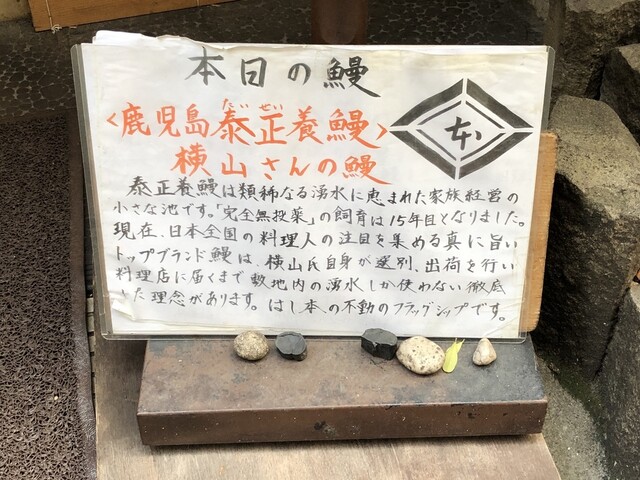 本日の鰻
本
たいせい
<鹿児島泰正養鰻>
横山さんの鰻
泰正養鰻は類稀なる湧水に恵まれた家族経営の
小さな池です。「完全無投薬」の飼育は15年目となりました。
現在、日本全国の料理人の注目を集める真に旨い
トップブランド鰻は、横山氏自身が選別、出荷を行い
料理店に届くまで敷地内の湧水しか使わない徹底
した理念があります。はし本、の不動のフラッグシップです。